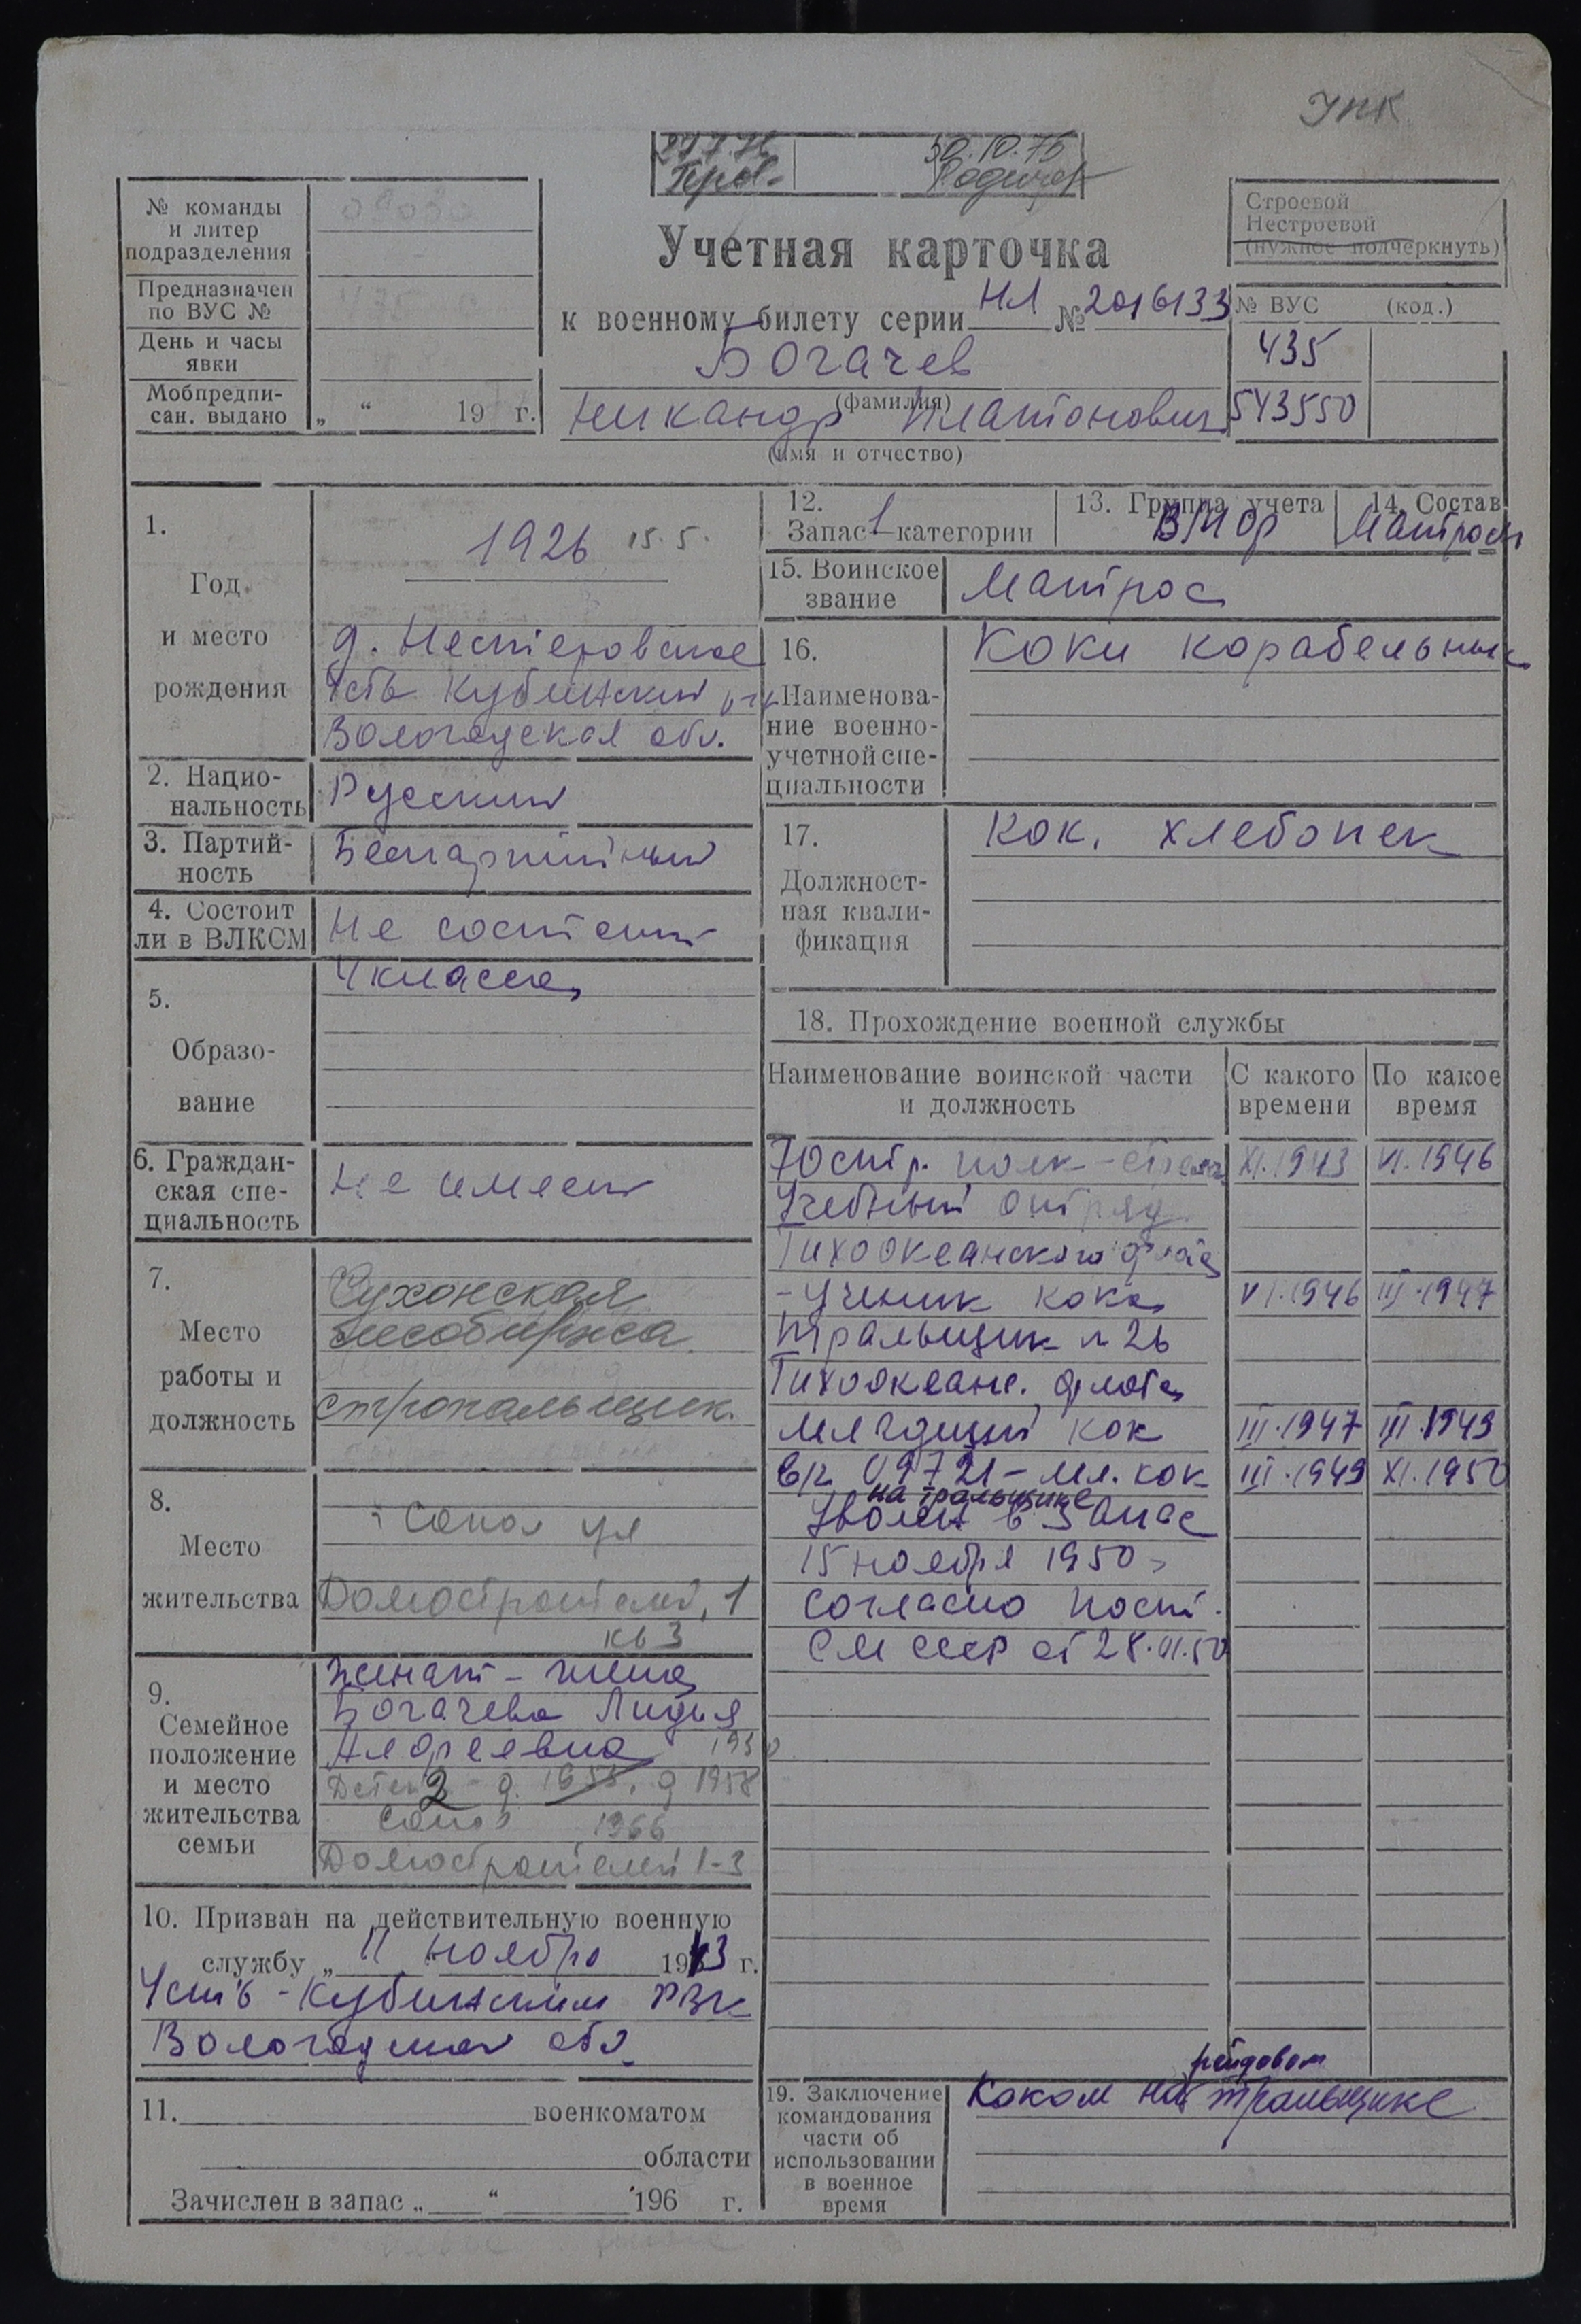 УПК
30.10.75
№ команды
и литер
подразделения
Предназначен
по ВУС №
День и часы
явки
Мобпредпи-
сан. выдано „ “ 19 г.
Учетная карточка
к военному билету серии НЛ № 2016133
Богачев
(фамилия)
Никандр Платонович
(имя и отчество)
Строевой
Нестроевой
(нужное подчеркнуть)
№ ВУС (код.)
435
543550
1.
Год
и место
рождения
1926 15.5.
д. Нестеровское
Усть Кубинский
Вологодская обл.
2. Нацио-
нальность
Русский
3. Партий-
ность
Беспартийный
4. Состоит
ли в ВЛКСМ
Не состоит
5.
Образо-
вание
4 класса
6. Граждан-
ская спе-
циальность
Не имеет
7.
Место
работы и
должность
Сухонская
лесобиржа
стропальщик.
8.
Место
жительства
г Сокол ул
Домостроителей, 1
кв 3
9.
Семейное
положение
и место
жительства
семьи
женат - жена
Богачева Лидия
1930
Детей 2 - д. 1955, д 1958
Сокол 1966
Домостроителей 1-3
10. Призван на действительную военную
службу „ 11 ноября 1943 г.
Усть-Кубинским РВК
Вологодской обл.
11. военкоматом
области
Зачислен в запас „ “ 196 г.
12.
Запас 1 категории
13. Группа учета
ВМФ
14. Состав
Матросы
15. Воинское
звание
Матрос
16.
Наименова-
ние военно-
учетной спе-
циальности
Коки корабельные
17.
Должност-
ная квали-
фикация
Кок. хлебопек
18. Прохождение военной службы
Наименование воинской части
и должность
С какого
времени
По какое
время
70 стр. полк - стрелок XI.1943 VI.1946
Учебный отряд
Тихоокеанского флота
- Ученик кока VI.1946 III.1947
тральщик № 26
Тихоокеанс. флота
младший кок III.1947 III.1949
в/ч 09721 - мл. кок III.1949 XI.1950
на тральщике
Уволен в запас
15 ноября 1950
согласно пост.
СМ СССР от 28.VI.50
19. Заключение
командования
части об
использовании
в военное
время
рейдовом
Коком на тральщике